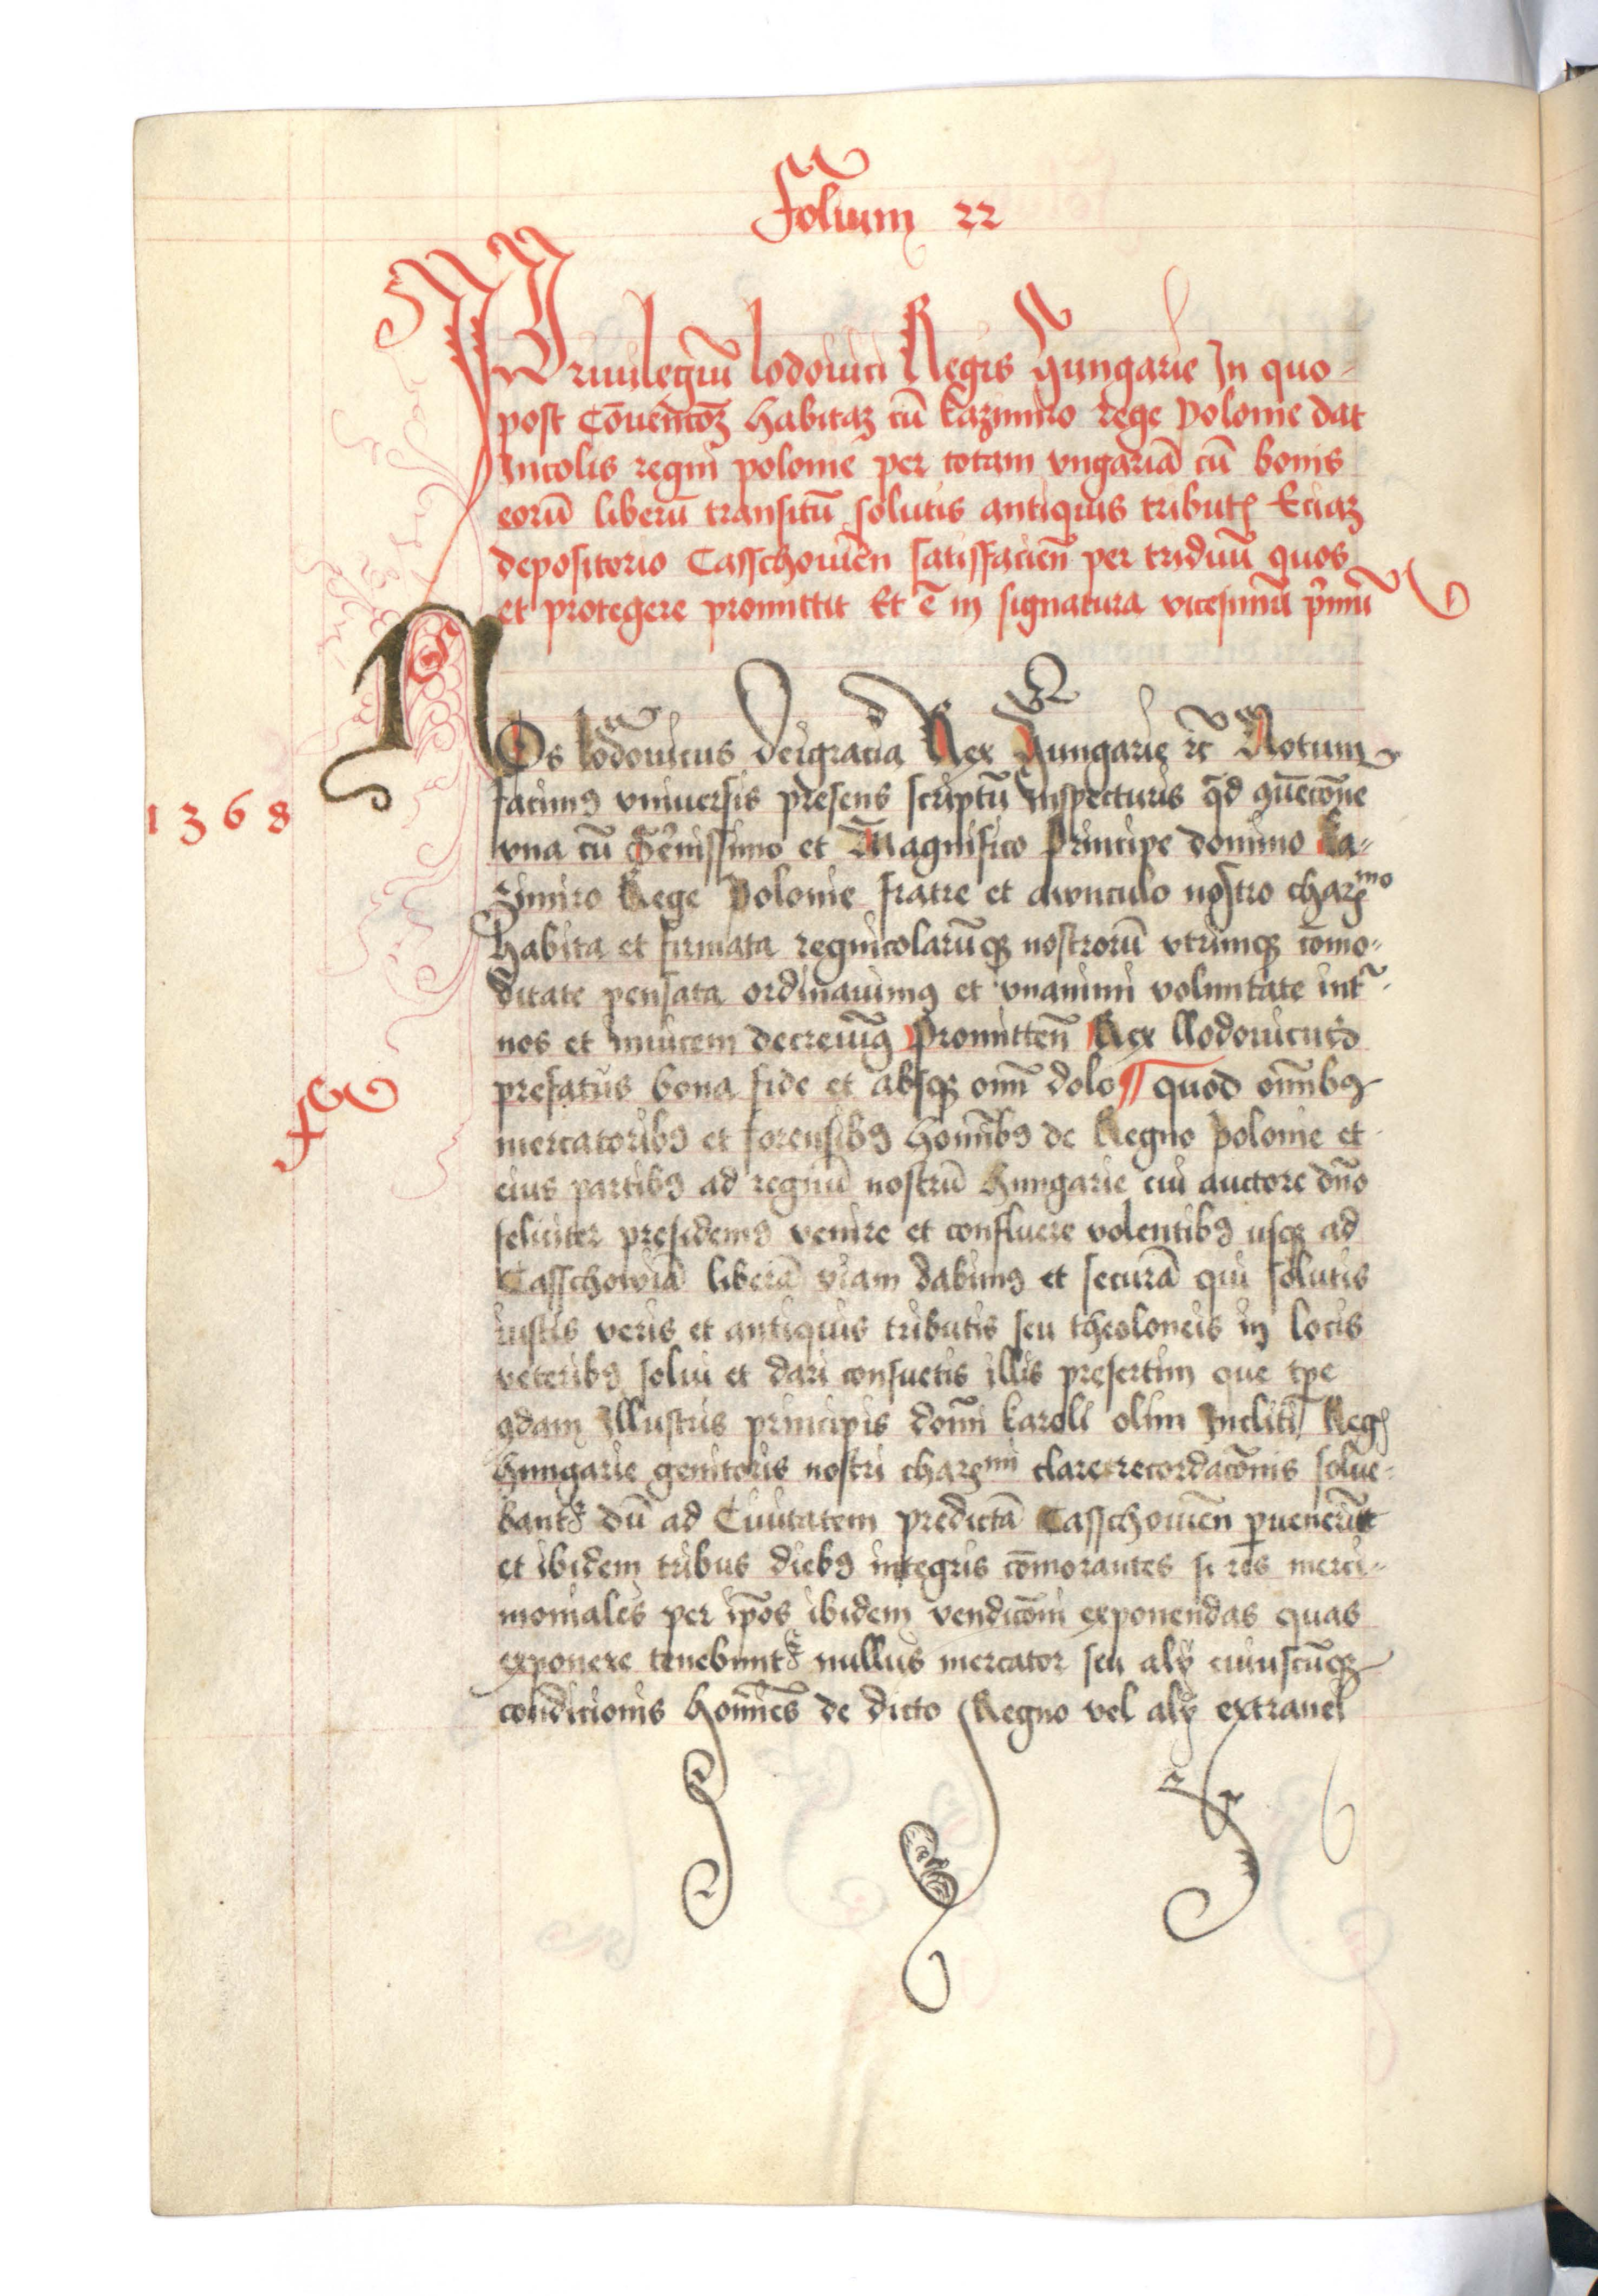 Folium 22
Priuilegiū lodouici Regis Hungarie In quo
post Cōuentōꝫ habitaꝫ cū kazimiro rege Polonie dat
Incolis regni polonie per totam vngariā cū bonis
eorū liberū transitū solutis antiquis tributꝭ Eciaꝫ
depositorio Casschouiēn satisfacieñ per triduū quos
et protegere promittit Et ē in signatura vicesimū pͥmū
NOs lodouicus deigracia Rex Hungarie ⁊c̄ Notum
1368
facimꝰ vniuersis presens scriptū Inspecturis qd̄ ꝯuēcōne
vna cū Sēnissimo et Magnifico Principe domino ka-
zimiro Rege Polonie fratre et awnculo nostro charꝫᵐᵒ
habita et firmata regnicolarūqꝫ nostrorū vtrimqꝫ cōmo-
ditate pensata ordinauimꝰ et vnanimi voluntate int̄
nos et inuicem decreuimꝰ Promitteñ Rex llodouicus
prefatus bona fide et absqꝫ om̄i dolo ¶ quod om̄ibꝰ
mercatoribꝰ et forensibꝰ hom̄ibꝰ de Regno polonie et
eius partibꝰ ad regnū nostrū Hungarie cui auctore dn̄o
feliciter presidemꝰ venire et confluere volentibꝰ usqꝫ ad
Casschowiā liberā viam dabimꝰ et securā qui solutis
iustis veris et antiquis tributis seu theoloneis in locis
veteribꝰ solui et dari consuetis illis presertim que tp̄e
qdam Illustris principis dom̄i karoli olim Incliti Regꝭ
Hungarie genitoris nostri charꝫᵐⁱ clare recordacōnis solue-
bantꝛ dū ad Ciuitatem predictā Casschouiēn ꝑuenerūt
et ibidem tribus diebꝰ integris cōmorantes si res merci-
moniales per ip̄os ibidem vendicōni exponendas quas
exponere tenebuntꝛ nullus mercator seu alÿ cuiuscūqꝫ
condicionis hom̄ies de dicto Regno vel alÿ extranei